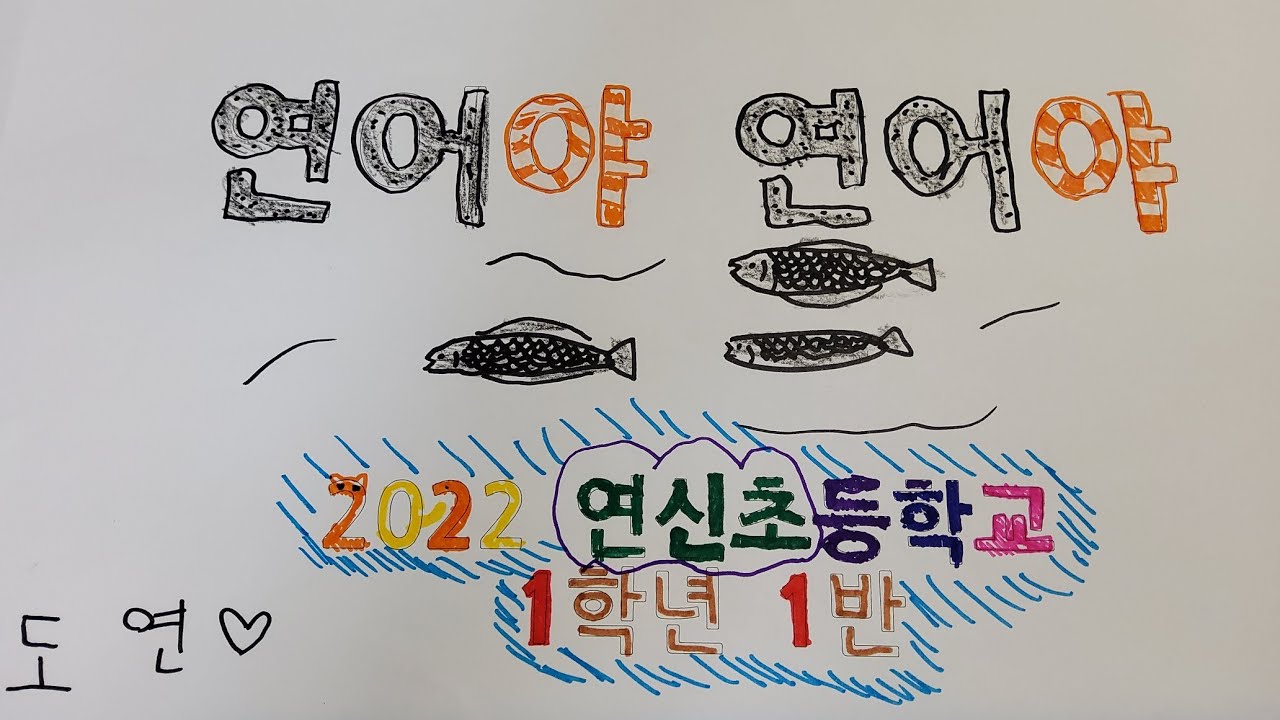 연어야 연어야
2022 연신초등학교
1학년 1반
도연♡